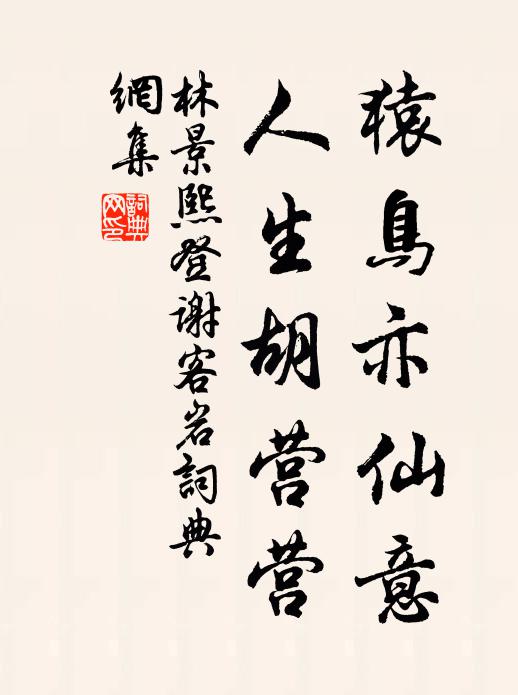 猿鳥亦仙意
人生胡营营
林景熙登谢客岩詞典
網集
詞典
网印